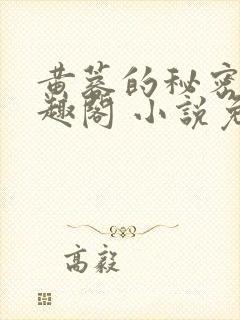 黄蓉的秘密
趣閣 小說免
高毅